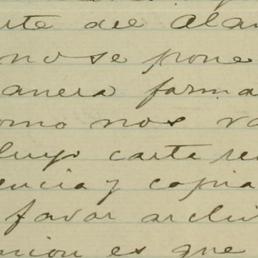 te del Alam
no se pone
anera forma
omo nos va
luyo carta re
encia y copia
favor archi
nion es que